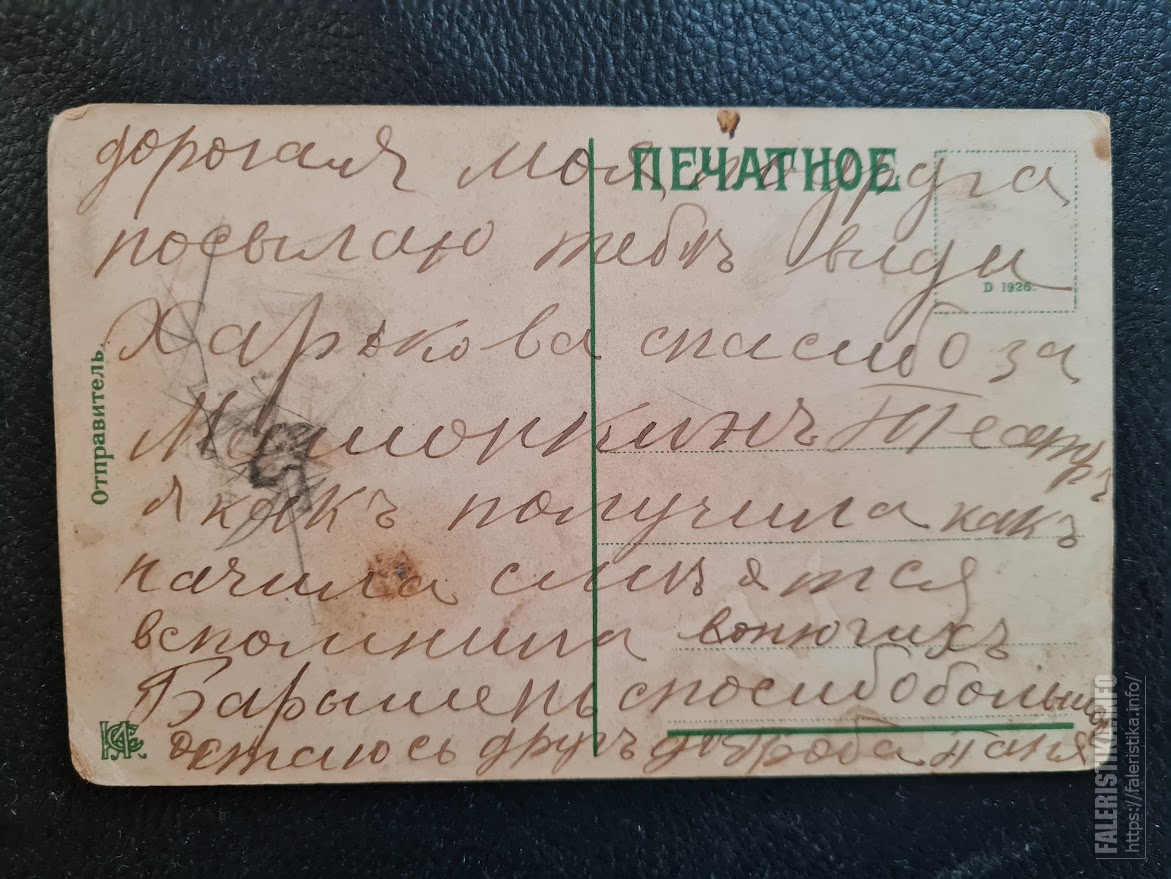 дорогая моя подруга
ПЕЧАТНОЕ
посылаю тебѣ виды
D 1926.
Харькова спасибо за
Отправитель.
Театръ
я какъ получила какъ
начила смѣятся
вспомнила вонючихъ
Барышень спосибо большое
остаюсь другъ до гроба Таня
FALERISTIKA.INFO
https://faleristika.info/